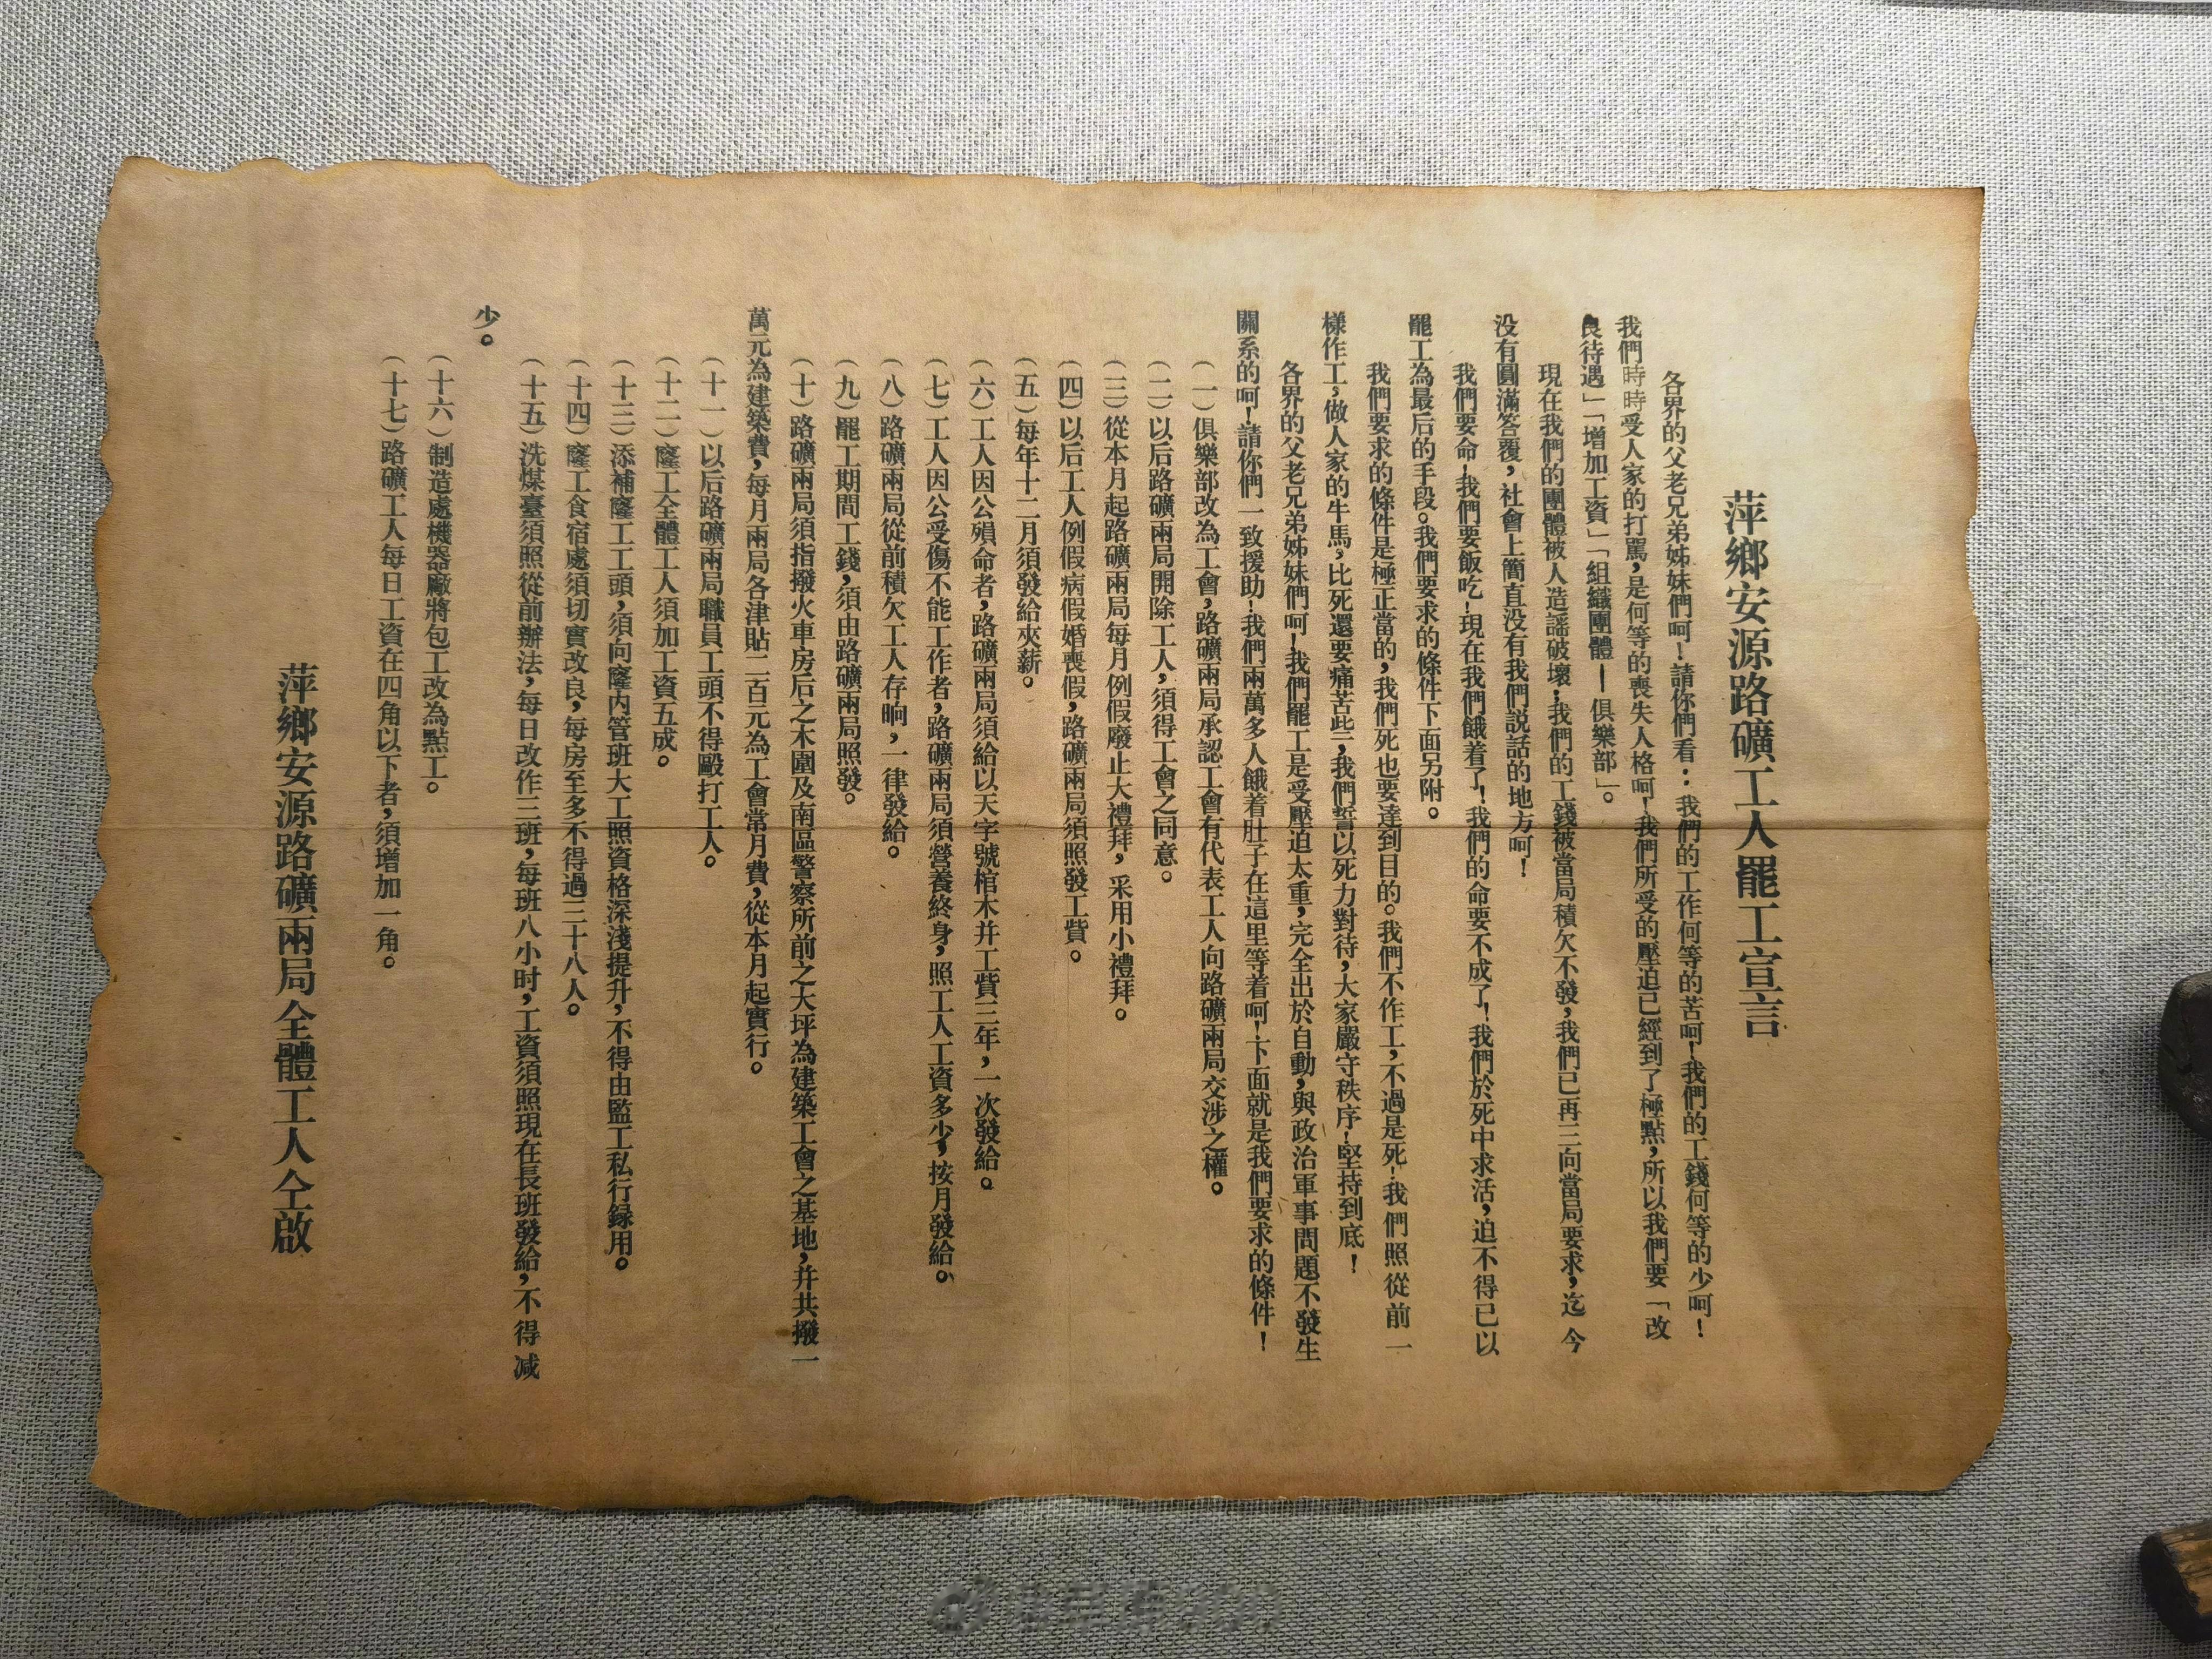 萍鄉安源路礦工人罷工宣言
各界的父老兄弟姊妹們呵!請你們看:我們的工作何等的苦呵!我們的工錢何等的少呵!
我們時時受人家的打罵,是何等的喪失人格呵!我們所受的壓迫已經到了極點,所以我們要「改
良待遇」「增加工資」「組織團體—俱樂部」。
現在我們的團體被人造謡破壞,我們的工錢被當局積欠不發,我們已再三向當局要求,迄今
没有圓滿答覆,社會上簡直没有我們説話的地方呵!
我們要命!我們要飯吃!現在我們餓着了!我們的命要不成了!我們於死中求活,迫不得已以
罷工為最后的手段。我們要求的條件下面另附。
我們要求的條件是極正當的,我們死也要達到目的。我們不作工,不過是死!我們照從前一
樣作工,做人家的牛馬,比死還要痛苦些,我們誓以死力對待,大家嚴守秩序!堅持到底!
各界的父老兄弟姊妹們呵!我們罷工是受壓迫太重,完全出於自動,與政治軍事問題不發生
關系的呵!請你們一致援助!我們兩萬多人餓着肚子在這里等着呵!下面就是我們要求的條件!
(一)俱樂部改為工會,路礦兩局承認工會有代表工人向路礦兩局交涉之權。
(二)以后路礦兩局開除工人,須得工會之同意。
(三)從本月起路礦兩局每月例假廢止大禮拜,采用小禮拜。
(四)以后工人例假病假婚喪假,路礦兩局須照發工貲。
(五)每年十二月須發給夾薪。
(六)工人因公殞命者,路礦兩局須給以天字號棺木并工貲三年,一次發給。
(七)工人因公受傷不能工作者,路礦兩局須營養終身,照工人工資多少,按月發給。
(八)路礦兩局從前積欠工人存晌,一律發給。
(九)罷工期間工錢,須由路礦兩局照發。
(十)路礦兩局須指撥火車房后之木圍及南區警察所前之大坪為建築工會之基地,并共撥一
萬元為建築費,每月兩局各津貼二百元為工會常月費,從本月起實行。
(十一)以后路礦兩局職員工頭不得毆打工人。
(十二)窿工全體工人須加工資五成。
(十三)添補窿工工頭,須向窿内管班大工照資格深淺提升,不得由監工私行録用。
(十四)窿工食宿處須切實改良,每房至多不得過三十八人。
(十五)洗煤臺須照從前辦法,每日改作三班,每班八小时,工資須照現在長班發給,不得减
少。
(十六)制造處機器廠將包工改為點工。
(十七)路礦工人每日工資在四角以下者,須增加一角。
萍鄉安源路礦兩局全體工人仝啟